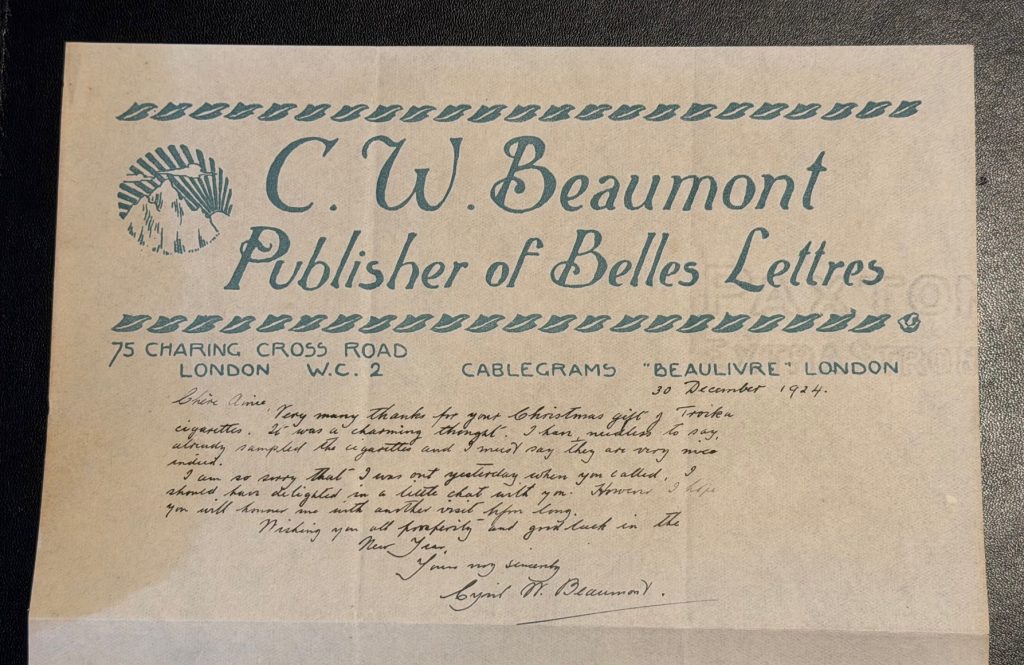 C. W. Beaumont
Publisher of Belles Lettres
75 CHARING CROSS ROAD
LONDON W.C. 2
CABLEGRAMS "BEAULIVRE" LONDON
30 December 1924.
Chère Amie
Very many thanks for your Christmas gift of Troika
cigarettes. It was a charming thought. I have, needless to say,
already sampled the cigarettes and I must say they are very nice
indeed.
I am so sorry that I was out yesterday when you called, I
should have delighted in a little chat with you. However I hope
you will honour me with another visit before long.
Wishing you all prosperity and good luck in the
New Year,
Yours very sincerely
Cyril W. Beaumont.
PAXTON
EXTRA STRONG